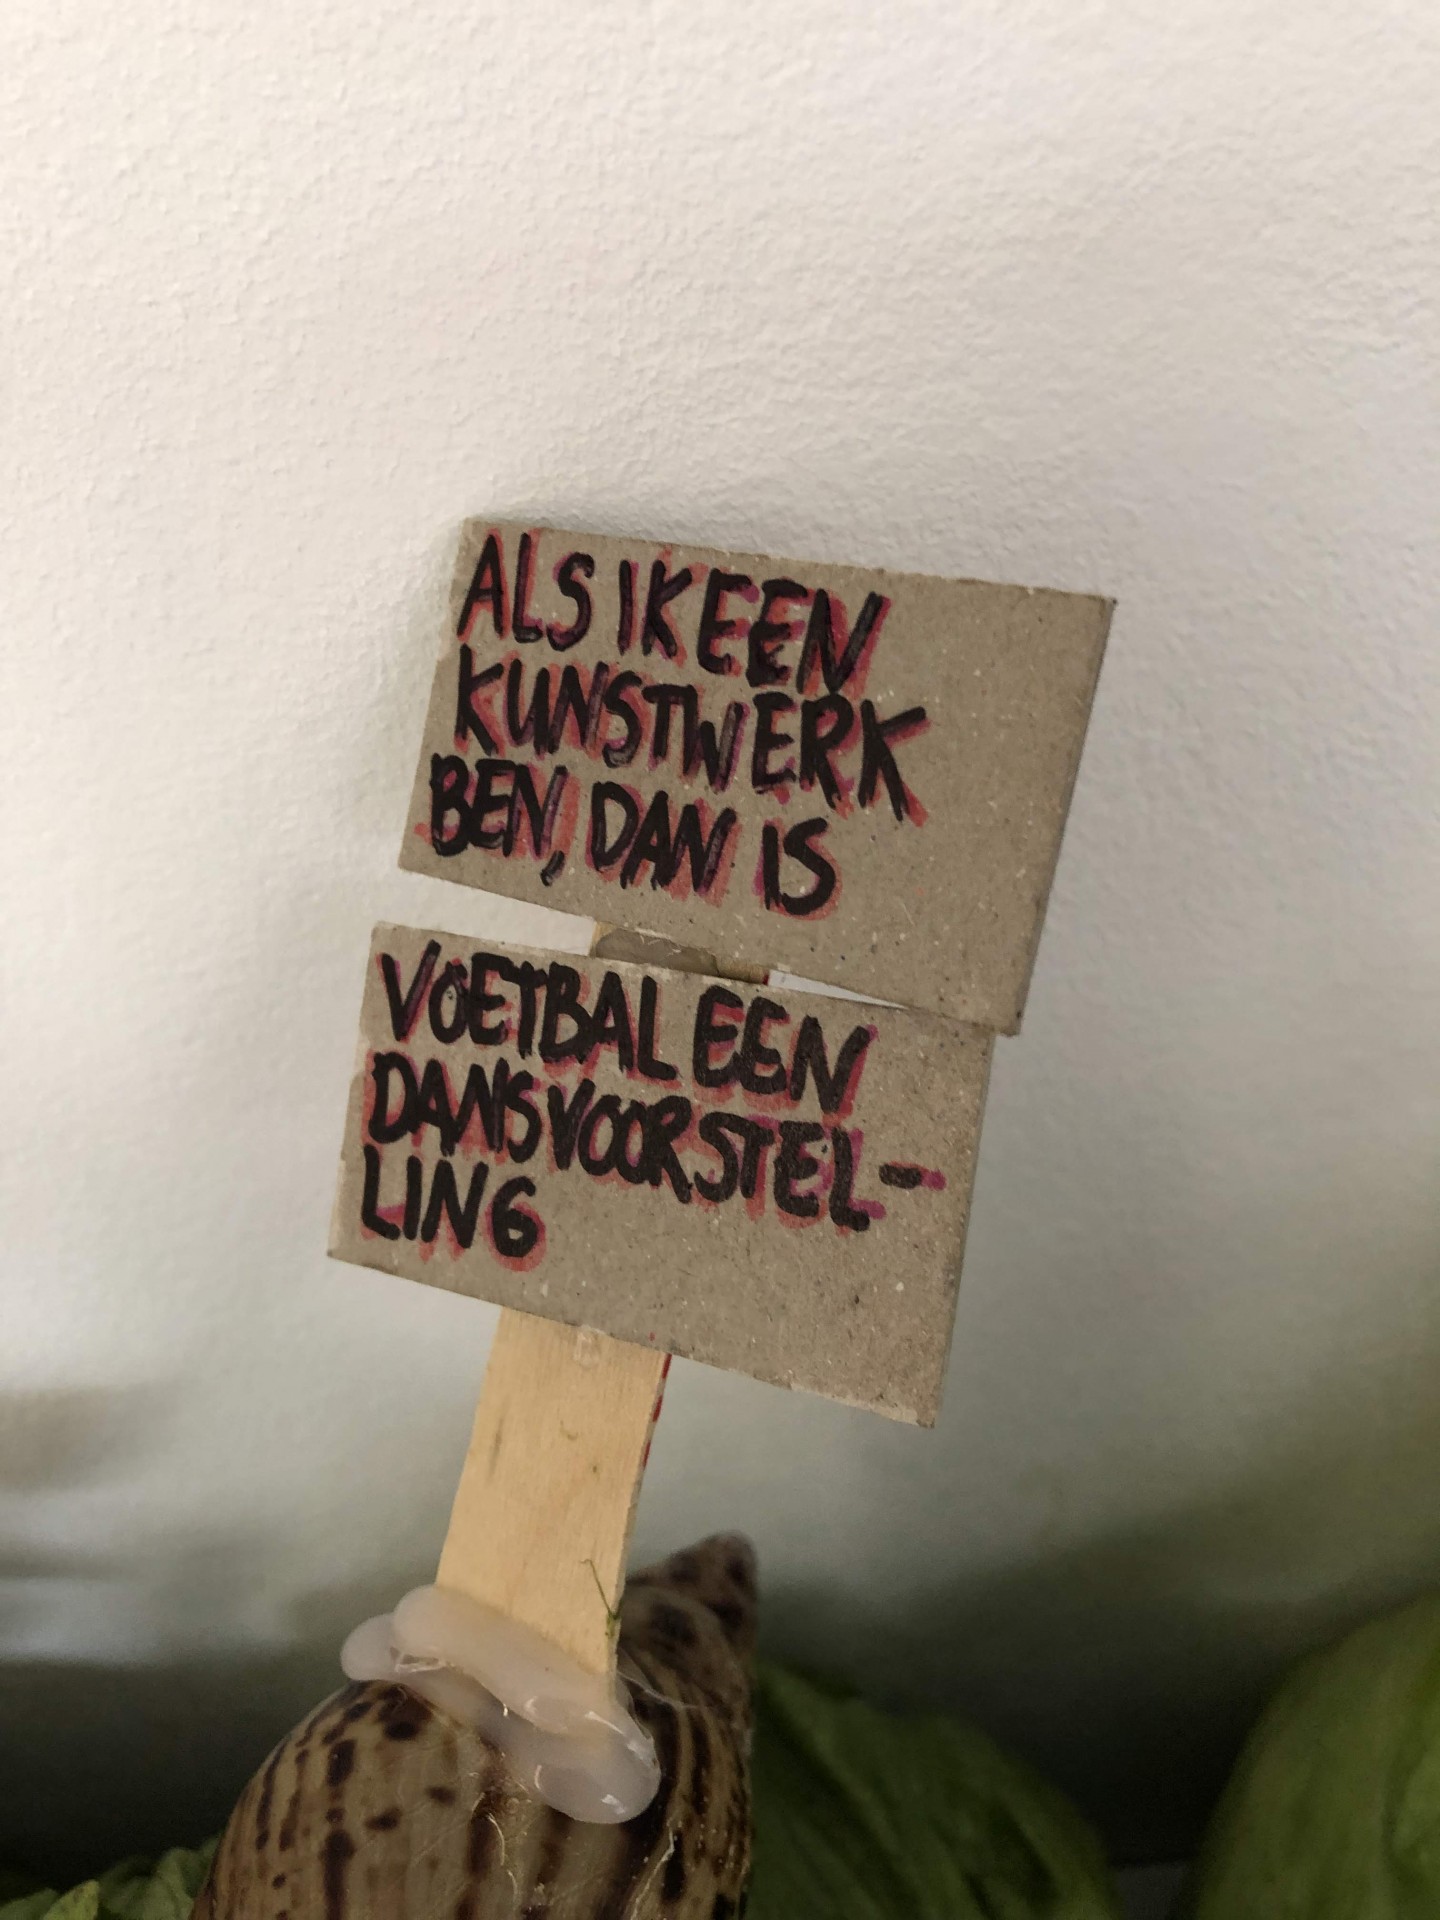 ALS IK EEN
KUNSTWERK
BEN, DAN IS
VOETBAL EEN
DANSVOORSTEL-
LING